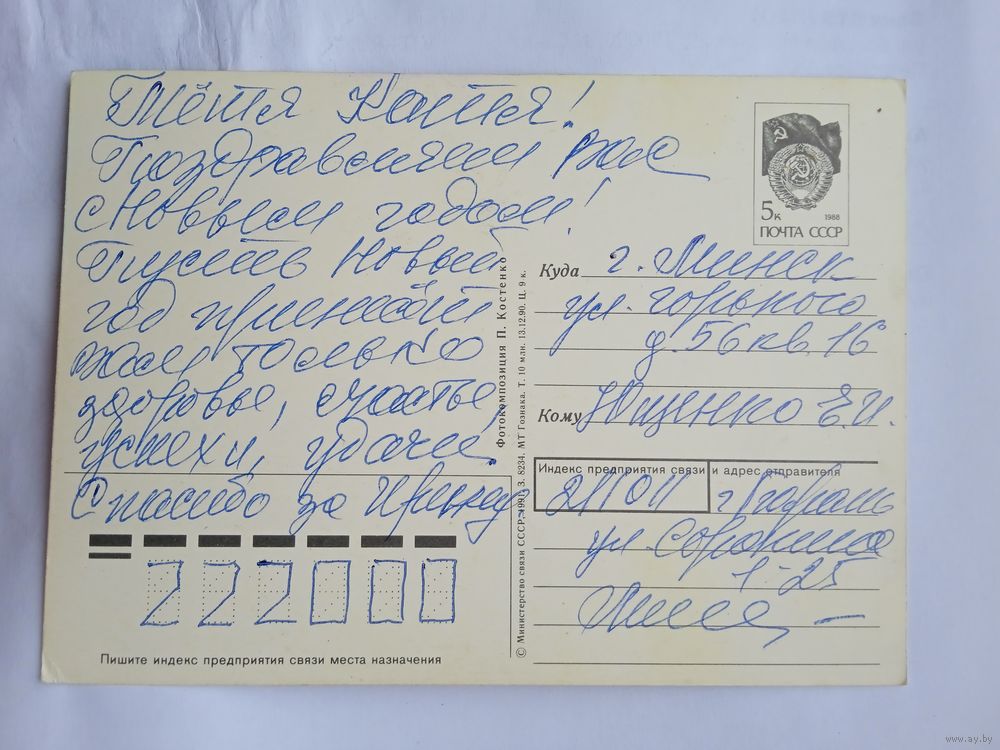 Тётя Катя!
Поздравляем вас
с Новым годом!
Пусть Новый
год принесёт
вам только
здоровье, счастье,
успехи, удачи.
Спасибо за Иринку
222000
Пишите индекс предприятия связи места назначения
© Министерство связи СССР, 1991. З. 8234. МТ Гознака. Т. 10 млн. 13.12.90. Ц. 9 к.
Фотокомпозиция П. Костенко
5к 1988
ПОЧТА СССР
Куда г. Минск
ул. Горького
д. 56 кв. 16
Кому Ющенко Е. И.
Индекс предприятия связи и адрес отправителя
211011 г.
ул. Сорокина
1-25
www.ay.by